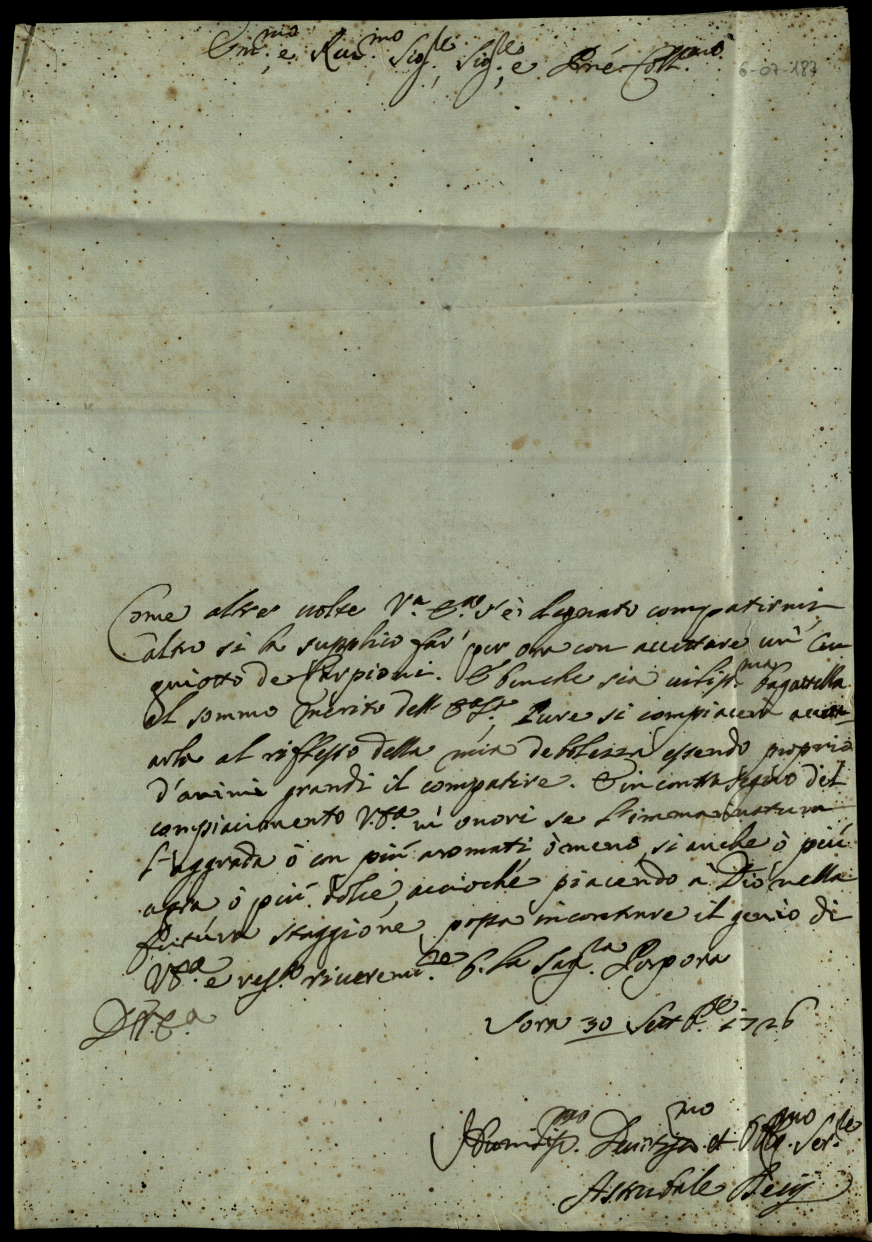 Em.mo, e Rev.mo Sig.re, Sig.re, e Prone Coll.mo
6-07-187
Come altre volte V.a Em.a s'è degnata compatirmi,
altro si la supplico far' per ora con accettare un'
de Carpioni. E benche sia vilis.ma bagattella
al sommo merito dell' E.a S.a; Pure si compiacerà
arla al riflesso della mia debolezza essendo proprio
d'animi grandi il compatire. E in contrasegno del
compiacimento V.E.a m' onori se
l'aggrada ò con più aromati ò meno, si anche ò più
agra ò più dolce, acciochè piacendo à Dio nella
futura staggione possa incontrare il genio di
V.E.a e resto riverem.te b. la Sag.ra Porpora
D.V.E.a
Sora 30 Sett.bre 1726
Humiliss.mo Devotiss.mo et Obblig.mo Ser.re
Asdrubale